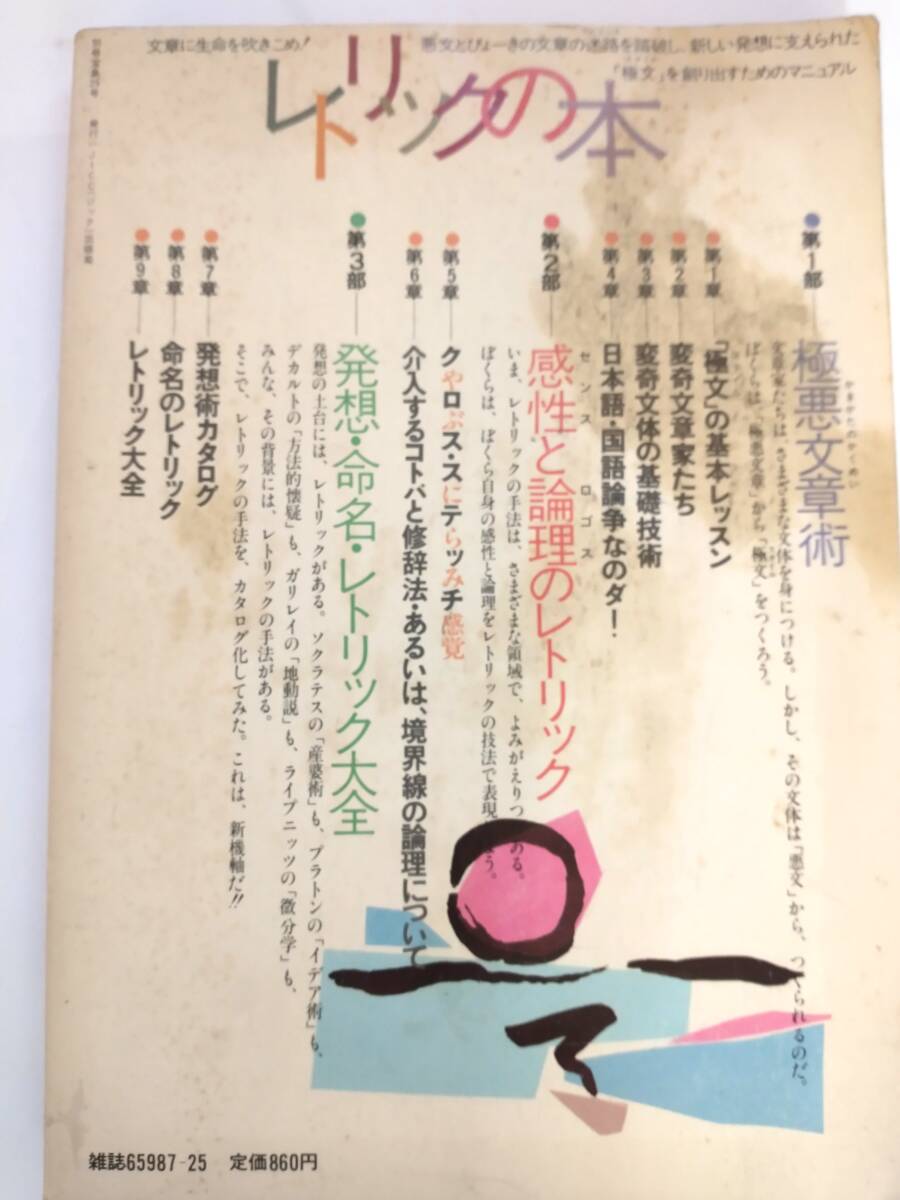 文章に生命を吹きこめ!
悪文とびょーきの文章の迷路を踏破し、新しい発想に支えられた
「極文」を創り出すためのマニュアル
レトリックの本
●第1部
極悪文章術
文章家たちは、さまざまな文体を身につける。しかし、その文体は「悪文」から、つくられるのだ。
ぼくらは、「極悪文章」から「極文」をつくろう。
●第1章
「極文」の基本レッスン
●第2章
変奇文章家たち
●第3章
変奇文体の基礎技術
●第4章
日本語・国語論争なのダー!
●第2部
感性と論理のレトリック
センス ロゴス
いま、レトリックの手法は、さまざまな領域で、よみがえりつ ある。
ぼくらは、ぼくら自身の感性と論理をレトリックの技法で表現 う。
●第5章
クやロぷス・スにテらッみチ感覚
●第6章
介入するコトバと修辞法・あるいは、境界線の論理について
●第3部
発想・命名・レトリック大全
発想の土台には、レトリックがある。ソクラテスの「産婆術」も、プラトンの「イデア術」も、
デカルトの「方法的懐疑」も、ガリレイの「地動説」も、ライプニッツの「微分学」も、
みんな、その背景には、レトリックの手法がある。
そこで、レトリックの手法を、カタログ化してみた。これは、新機軸だ!!
●第7章
発想術カタログ
●第8章
命名のレトリック
●第9章
レトリック大全
雑誌65987-25 定価860円